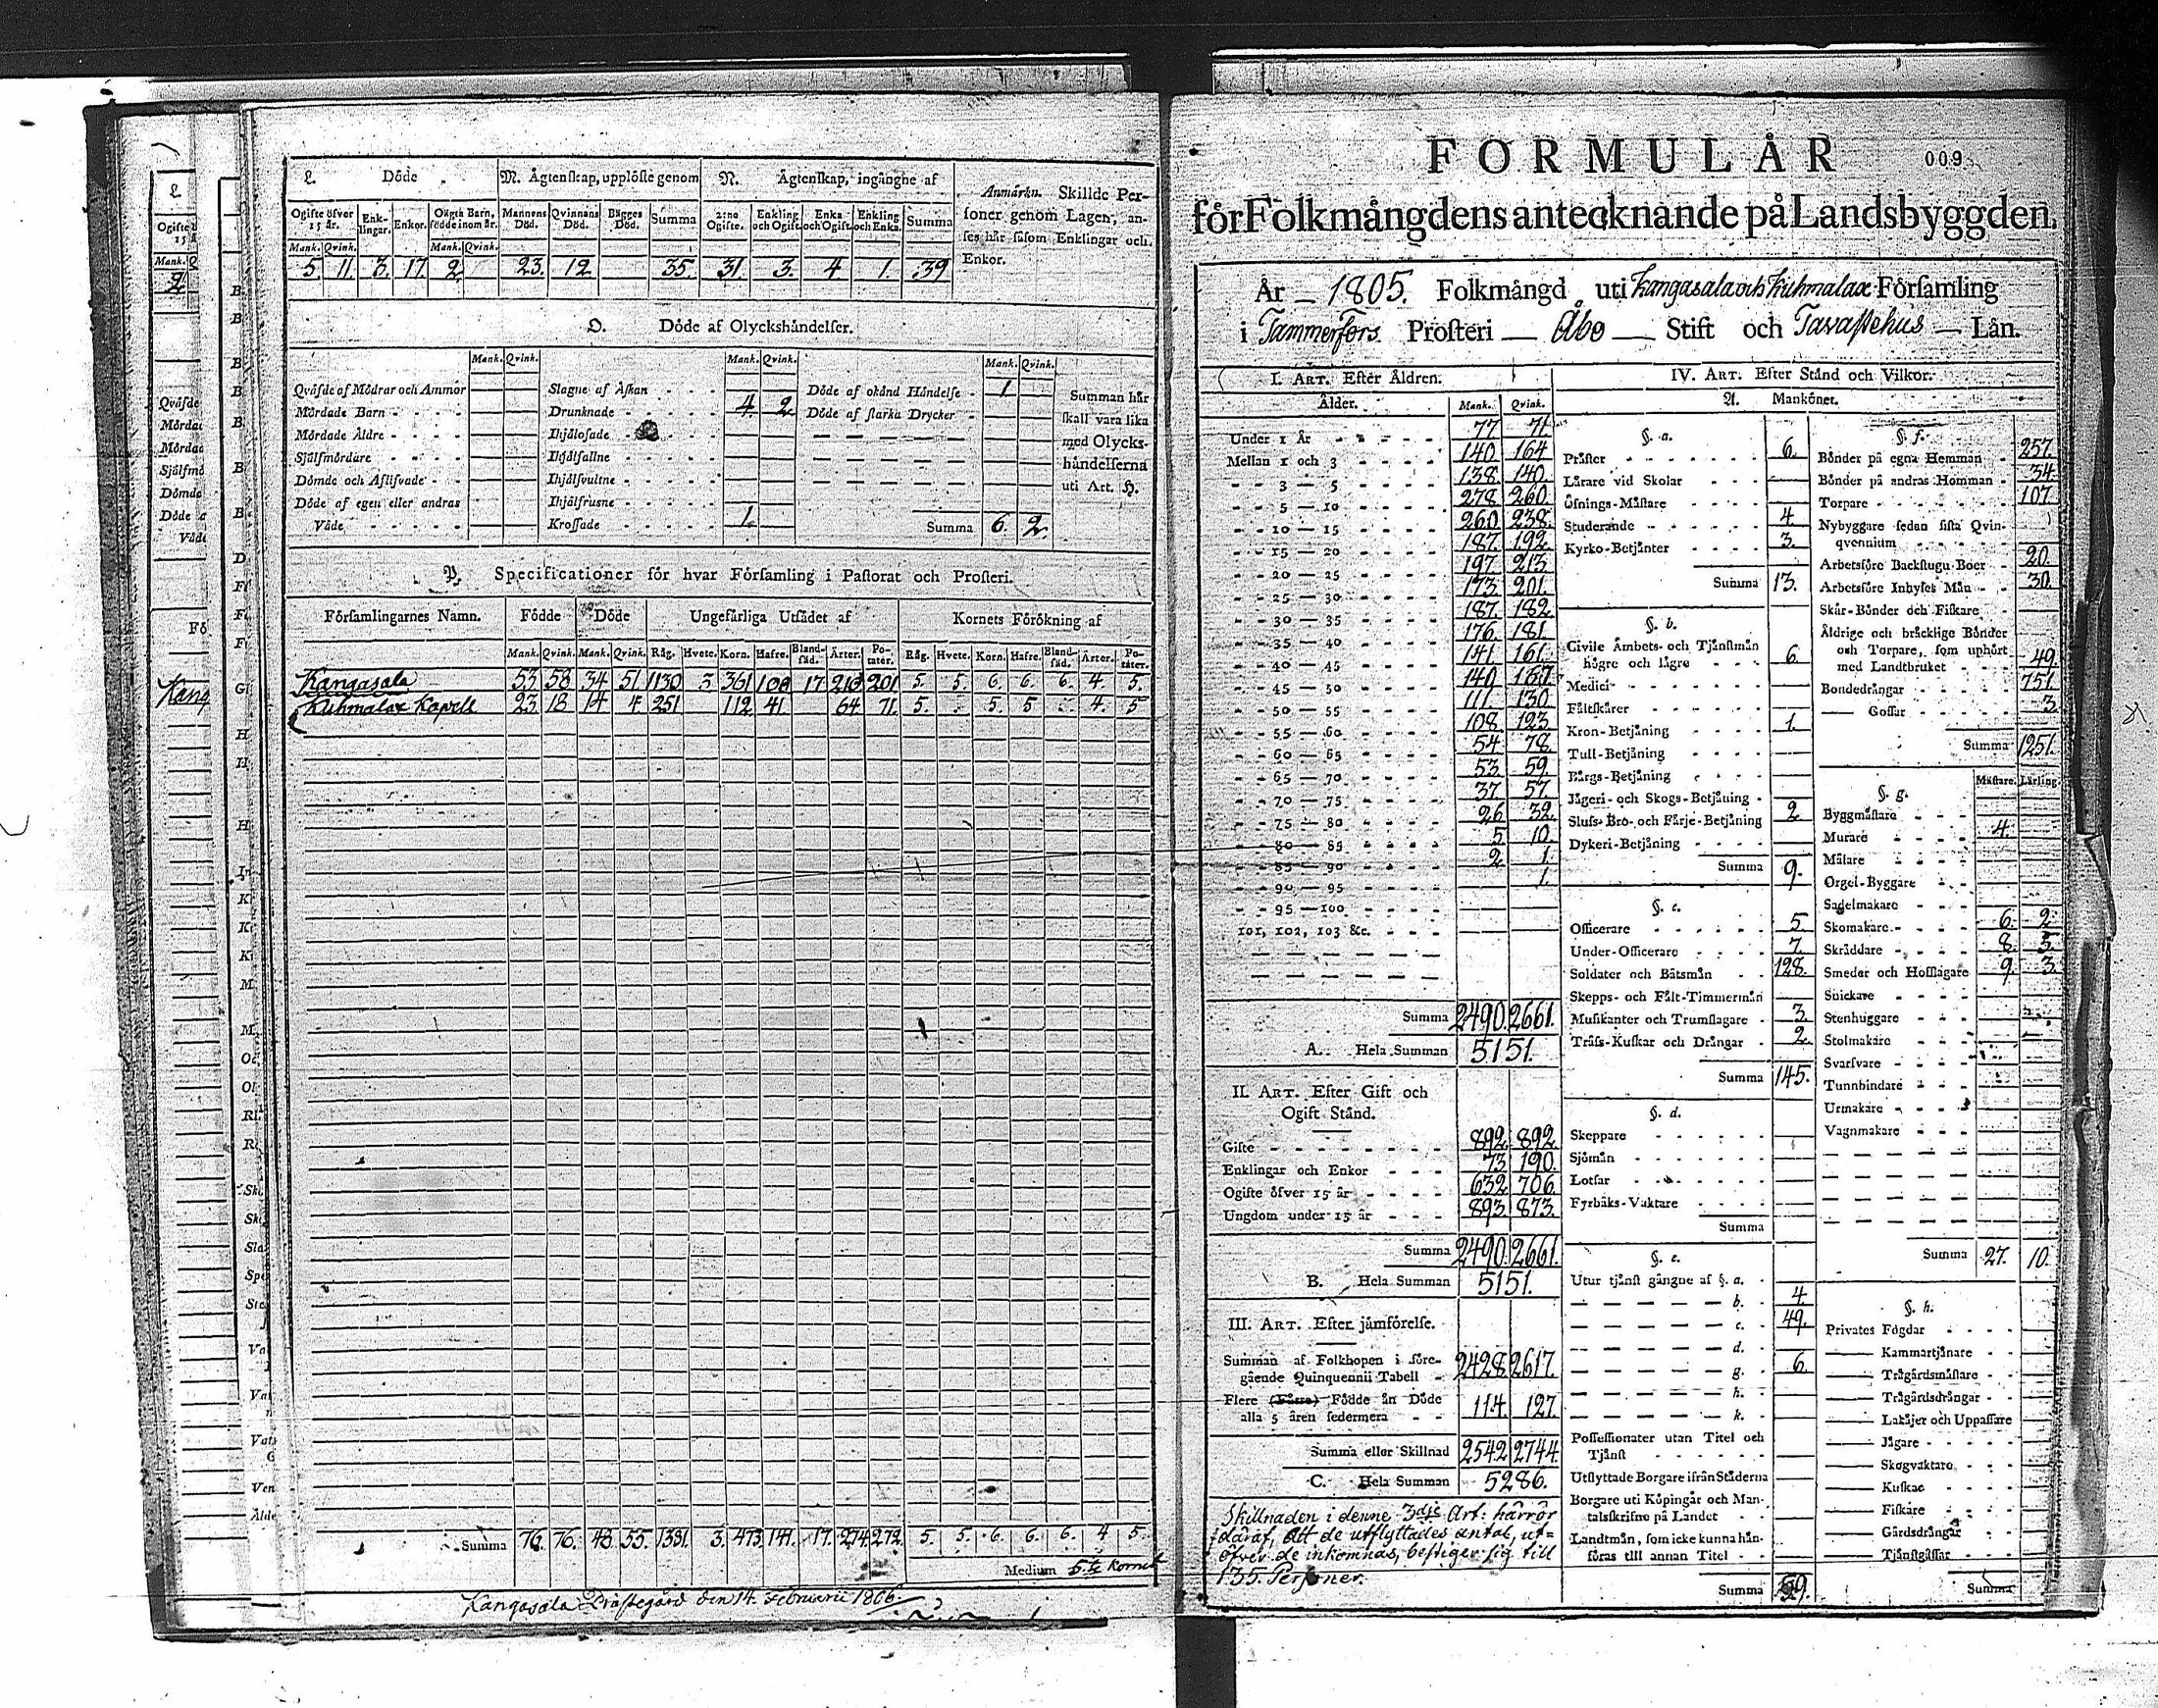 L. Döde
M. Ägtenskap, upplöste genom
N. Ägtenskap, ingångne af
Anmärkn. Skillde Personer genom Lagen, anses här såsom Enklingar och Enkor.
Ogifte öfver 15 år. Enklingar. Enkor. Oägta Barn, födde inom år. Mannens Död. Qvinnans Död. Bägges Död. Summa 2:ne Ogifte. Enkling och Ogift. Enka och Ogift. Enkling och Enka. Summa
Mank. Qvink. Mank. Qvink.
5. 11. 3. 17. 2. 23. 12. 35. 31. 3. 4 1. 39
O. Döde af Olyckshändelser.
Mank. Qvink. Mank. Qvink. Mank. Qvink.
Qväfde af Mödrar och Ammor
Mördade Barn
Mördade Äldre
Självmördare
Dömde och Aflifvade
Döde af egen eller andras
Våde
Slagne af Åskan
Drunknade 4. 2
Ihjälosade
Ihjälfallne
Ihjälsvultne
Ihjälfrusne
Krossade 1.
Döde af okänd Händelse 1
Döde af starka Drycker
Summa 6. 2.
Summan här
skall vara lika
med Olycks-
händelserna
uti Art. H.
P. Specificationer för hvar Församling i Pastorat och Prosteri.
Församlingarnes Namn. Födde Döde Ungefärliga Utsädet af Kornets Förökning af
Mank. Qvink. Mank. Qvink. Råg. Hvete. Korn. Hafre. Bland-säd. Ärter. Po-täter. Råg. Hvete. Korn. Hafre. Bland-säd. Ärter. Po-täter.
Kangasala 53 58 34 51 1130 3 361 100 17 210 201 5. 5. 6. 6. 6. 4. 5.
Kuhmalax Kapell 23 18 14 4 251 112 41 64 71. 5. 5. 5 4. 5
Summa 76. 76. 48. 55. 1381. 3. 473. 141. 17. 274. 272. 5. 5. 6. 6. 6. 4 5.
Medium Kornet
Kangasala Prästegård den 14. Februarii 1806.
FORMULÄR
009
för Folkmängdens antecknande på Landsbyggden.
År 1805. Folkmängd uti Kangasala och Kuhmalax Församling
i Tammerfors Prosteri Åbo Stift och Tavastehus Län.
I. ART. Efter Åldren.
Ålder. Mank. Qvink.
Under 1 År 77 71
Mellan 1 och 3 140 164
3 — 5 138. 140.
5 — 10 278. 260.
10 — 15 260. 238.
15 — 20 187. 192.
20 — 25 197. 213.
25 — 30 173. 201.
30 — 35 187. 182.
35 — 40 176. 181.
40 — 45 141. 161.
45 — 50 140. 167.
50 — 55 111. 130.
55 — 60 108. 123.
60 — 65 54. 78.
65 — 70 53. 59.
70 — 75 37. 57.
75 — 80 26 32.
80 — 85 5 10.
85 — 90 2. 1.
90 — 95 1.
95 — 100
101, 102, 103 &c.
Summa 2490. 2661.
A. Hela Summan 5151.
II. ART. Efter Gift och
Ogift Stånd.
Gifte 892. 892
Enklingar och Enkor 73 190.
Ogifte öfver 15 år 632 706.
Ungdom under 15 år 893 873.
Summa 2490. 2661.
B. Hela Summan 5151.
III. ART. Efter jämförelse.
Summan af Folkhopen i före-
gående Quinquennii Tabell 2428. 2617.
Flere (Färre) Födde än Döde
alla 5 åren sedermera 114. 127.
Summa eller Skillnad 2542 2744
C. Hela Summan 5286.
Skillnaden i denne 3dje Art: härrör
däraf, att de utflyttades antal, ut-
öfver de inkomnas, bestiger sig till
135. Personer.
IV. ART. Efter Stånd och Vilkor.
A. Mankönet.
§. a.
Präster 6.
Lärare vid Skolar
Öfnings-Mästare
Studerande 4
Kyrko-Betjänter 3.
Summa 13.
§. b.
Civile Ämbets- och Tjänstmän
högre och lägre 6.
Medici
Fältskärer
Kron-Betjäning 1.
Tull-Betjäning
Bärgs-Betjäning
Jägeri- och Skogs-Betjäning
Sluss- Bro- och Färje-Betjäning 2
Dykeri-Betjäning
Summa 9.
§. c.
Officerare 5
Under-Officerare 7.
Soldater och Båtsmän 128.
Skepps- och Fält-Timmermän
Musikanter och Trumslagare 3.
Träss-Kuskar och Drängar 2.
Summa 145.
§. d.
Skeppare
Sjömän
Lotsar
Fyrbåks-Vaktare
Summa
§. e.
Utur tjänst gångne af §. a.
b. 4.
c. 49.
d.
g. 6.
h.
k.
Possessionater utan Titel och
Tjänst
Utflyttade Borgare ifrån Städerna
Borgare uti Köpingar och Man-
talsskrifne på Landet
Landtmän, som icke kunna hän-
föras till annan Titel
Summa 59.
§. f.
Bönder på egna Hemman 257.
Bönder på andras Hemman 34.
Torpare 107.
Nybyggare sedan sista Qvin-
qvennium
Arbetsföre Backstugu Boer 20.
Arbetsföre Inhyses Män 30.
Skär-Bönder och Fiskare
Äldrige och bräcklige Bönder
och Torpare, som uphört
med Landtbruket 49.
Bondedrängar 751.
Gossar 3.
Summa 1251.
Mästare. Lärling.
§. g.
Byggmästare
Murare 4.
Målare
Orgel-Byggare
Sadelmakare
Skomakare 6. 2.
Skräddare 8. 5.
Smeder och Hofslagare 9. 3.
Snickare
Stenhuggare
Stolmakare
Svarfvare
Tunnbindare
Urmakare
Vagnmakare
Summa 27. 10.
§. h.
Privates Fogdar
Kammartjänare
Trägårdsmästare
Trägårdsdrängar
Lakäjer och Uppassare
Jägare
Skogvaktare
Kuskar
Fiskare
Gårdsdrängar
Tjänstgåssar
Summa